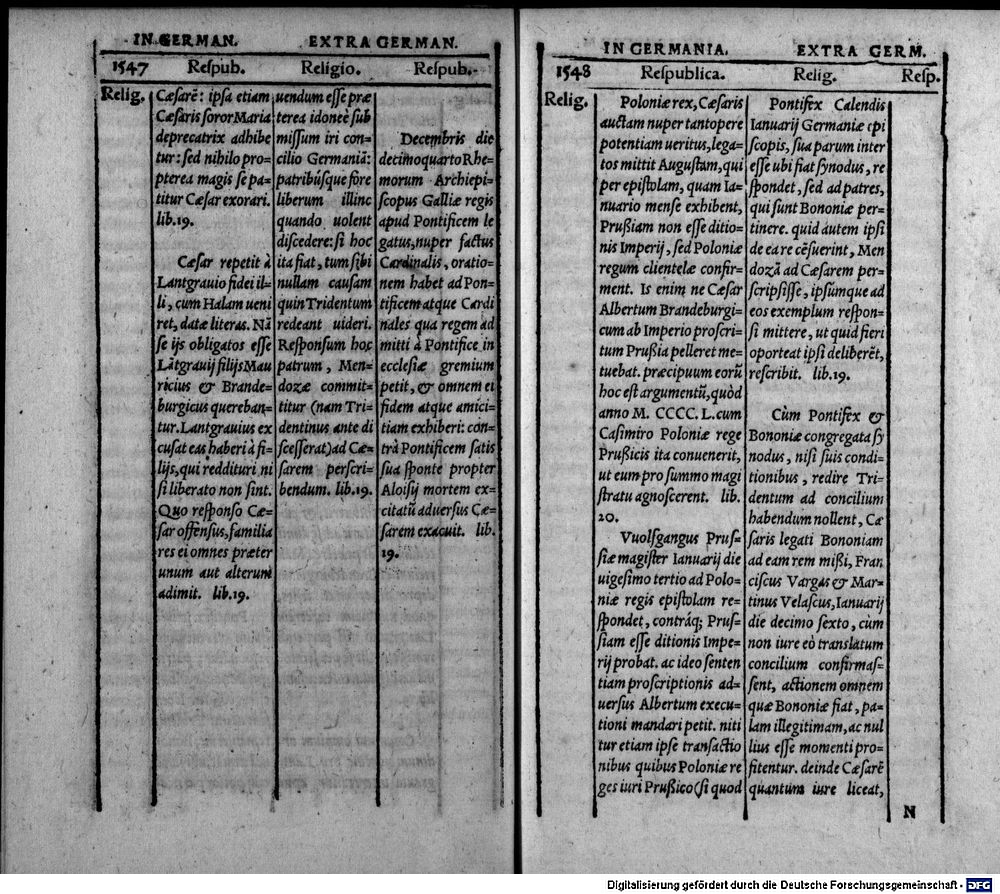 IN GERMAN. EXTRA GERMAN.
1547 Respub. Religio. Respub.
Relig.
Cæsarē: ipsa etiam
Cæsaris soror Maria
deprecatrix adhibe
tur: sed nihilo pro-
pterea magis se pa-
titur Cæsar exorari.
lib.19.
Cæsar repetit à
Lantgrauio fidei il-
li, cum Halam ueni
ret, datæ literas. Nā
se ijs obligatos esse
Lātgrauij filijs Mau
ricius & Brande-
burgicus quereban-
tur. Lantgrauius ex
cusat eas haberi à fi-
lijs, qui reddituri ni
si liberato non sint.
Quo responso Cæ-
sar offensus, familia
res ei omnes præter
unum aut alterum
adimit. lib.19.
uendum esse præ
terea idoneè sub
missum iri con-
cilio Germaniā:
patribúsque fore
liberum illinc
quando uolent
discedere: si hoc
ita fiat, tum sibi
nullam causam
quin Tridentum
redeant uideri.
Responsum hoc
patrum, Men-
dozæ commit-
titur (nam Tri-
dentinus ante di
scesserat) ad Cæ-
sarem perscri-
bendum. lib.19.
Decembris die
decimoquarto Rhe-
morum Archiepi-
scopus Galliæ regis
apud Pontificem le
gatus, nuper factus
Cardinalis, oratio-
nem habet ad Pon-
tificem atque Cardi
nales qua regem ad
mitti à Pontifice in
ecclesiæ gremium
petit, & omnem ei
fidem atque amici-
tiam exhiberi: con-
trà Pontificem satis
sua sponte propter
Aloisij mortem ex-
citatū aduersus Cæ-
sarem exacuit. lib.
19.
IN GERMANIA. EXTRA GERM.
1548 Respublica. Relig. Resp.
Relig.
Poloniæ rex, Cæsaris
auctam nuper tantopere
potentiam ueritus, lega-
tos mittit Augustam, qui
per epistolam, quam Ia-
nuario mense exhibent,
Prußiam non esse ditio-
nis Imperij, sed Poloniæ
regum clientelæ confir-
ment. Is enim ne Cæsar
Albertum Brandeburgi-
cum ab Imperio proscri-
tum Prußia pelleret me-
tuebat. præcipuum eorū
hoc est argumentū, quòd
anno M. CCCC. L. cum
Casimiro Poloniæ rege
Prußicis ita conuenerit,
ut eum pro summo magi
stratu agnoscerent. lib.
20.
Vuolfgangus Prus-
siæ magister Ianuarij die
uigesimo tertio ad Polo-
niæ regis epistolam re-
spondet, contráq; Prus-
siam esse ditionis Impe-
rij probat. ac ideo senten
tiam proscriptionis ad-
uersus Albertum execu-
tioni mandari petit. niti
tur etiam ipse transactio
nibus quibus Poloniæ re
ges iuri Prußico (si quod
Pontifex Calendis
Ianuarij Germaniæ epi
scopis, sua parum inter
esse ubi fiat synodus, re
spondet, sed ad patres,
qui sunt Bononiæ per-
tinere. quid autem ipsi
de ea re cēsuerint, Men
dozā ad Cæsarem per-
scripsisse, ipsúmque ad
eos exemplum respon-
si mittere, ut quid fieri
oporteat ipsi deliberēt,
rescribit. lib.19.
Cùm Pontifex &
Bononiæ congregata sy
nodus, nisi suis condi-
tionibus, redire Tri-
dentum ad concilium
habendum nollent, Cæ
saris legati Bononiam
ad eam rem mißi, Fran
ciscus Vargas & Mar-
tinus Velascus, Ianuarij
die decimo sexto, cum
non iure eò translatum
concilium confirmas-
sent, actionem omnem
quæ Bononiæ fiat, pa-
lam illegitimam, ac nul
lius esse momenti pro-
fitentur. deinde Cæsarē
quantum iure liceat,
N
Digitalisierung gefördert durch die Deutsche Forschungsgemeinschaft - DFG